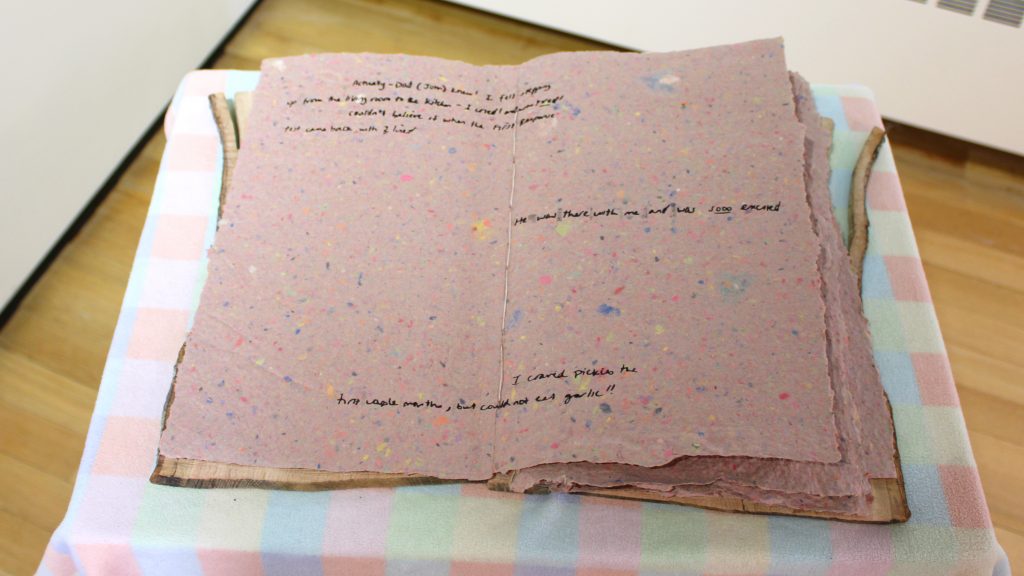 Actually - Dad (John) knew! I fell stepping
up from the living room to the kitchen - I cried! and was
couldn't believe it when the First Response
test came back with 2 lines
He was there with me and was sooo excited
I craved pickles the
first couple months, but could not eat garlic!!